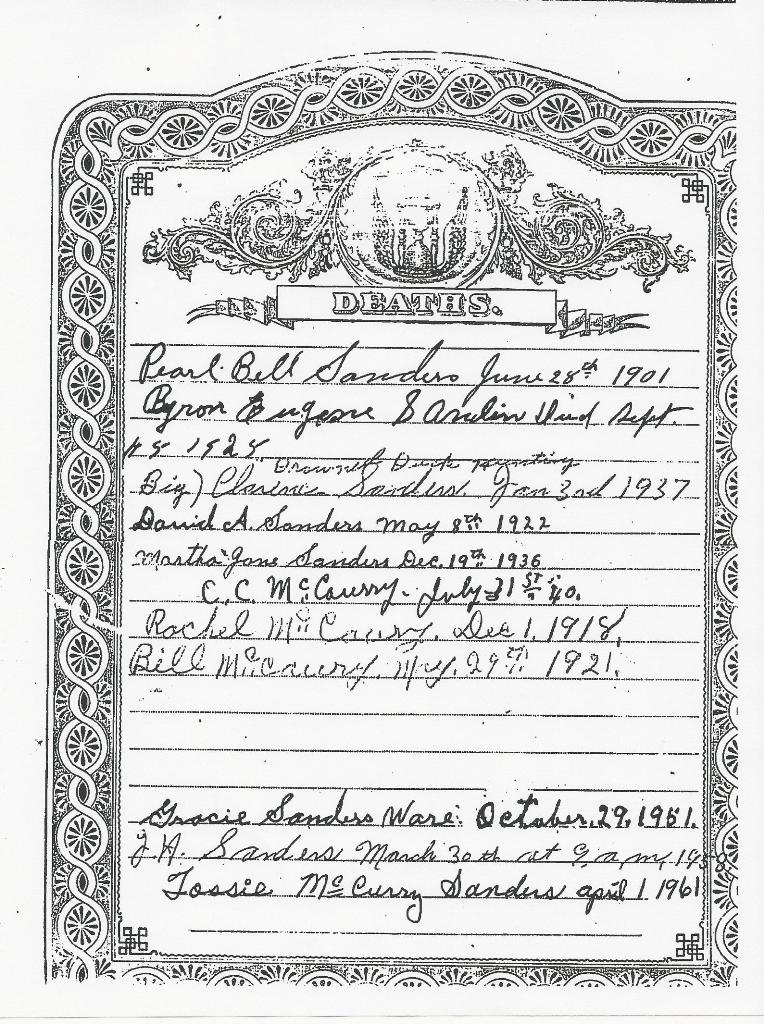 DEATHS.
Pearl Bell Sanders June 28th 1901
Byron Eugene Sanders Died Sept.
1925.
Drowned Duck Hunting
Big) Clarence Sanders. Jan 3rd 1937
David A. Sanders May 8th 1922
Martha Jane Sanders Dec. 19th 1936
C. C. McCaurry. July 31st 40.
Rachel McCaury. Dec 1, 1918,
Bill McCaurry. 29th 1921.
Gracie Sanders Ware. October, 29, 1951.
J. A. Sanders March 30th at 9, a, m, 1958
Tossie McCurry Sanders april 1 1961